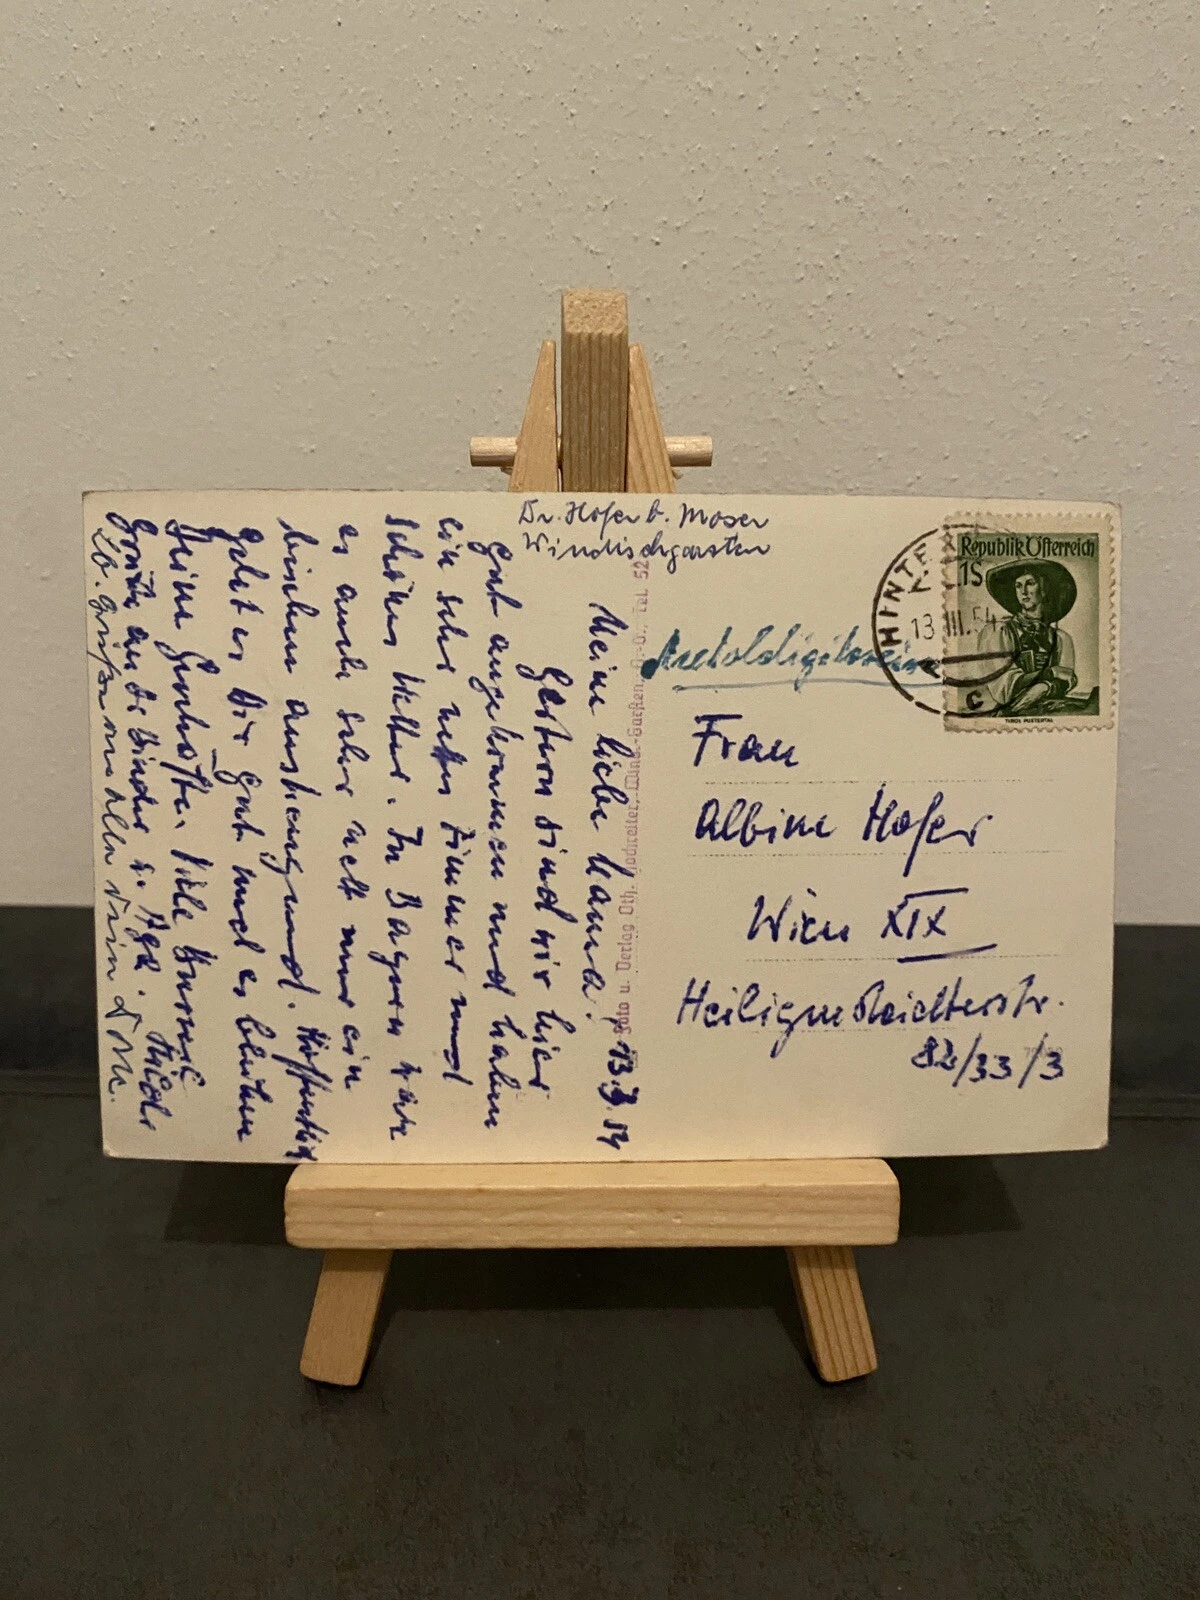 Dr. Hofer b. Moser
Windischgarsten
Meine liebe Mama! 13.3.54
Gestern sind wir hier
gut angekommen und haben
ein sehr nettes Zimmer und
schönes Wetter. In Bayern war
es auch sehr nett nur ein
bischen anstrengend. Hoffentlich
geht es Dir gut und es bleiben
Deine
Viele
Grüße an
Lb. Grüße von
Foto u. Verlag Oth. Hochreiter, Wind.-Garsten, O.-Ö., Tel. 52
Frau
Albine Hofer
Wien XIX
Heiligenstädterstr.
82/33/3
Republik Österreich
1S
TIROL PUSTERTAL
HINTE
13.III.54
c